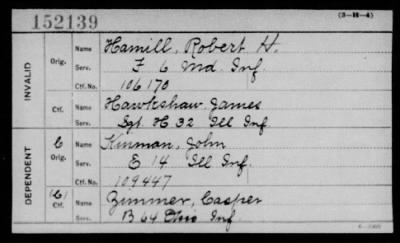 152139
(3-H-4)
INVALID
Orig.
Name Hamill, Robert H.
Serv. F 6 Md. Inf.
Ctf. No. 106170
Ctf.
Name Hawkshaw James
Serv. Sgt. H 32 Ill Inf.
DEPENDENT
C
Orig.
Name Kinman, John
Serv. E 14 Ill Inf.
Ctf. No. 109447
(C)
Ctf.
Name Zimmer, Casper
Serv. B 64 Ohio Inf.